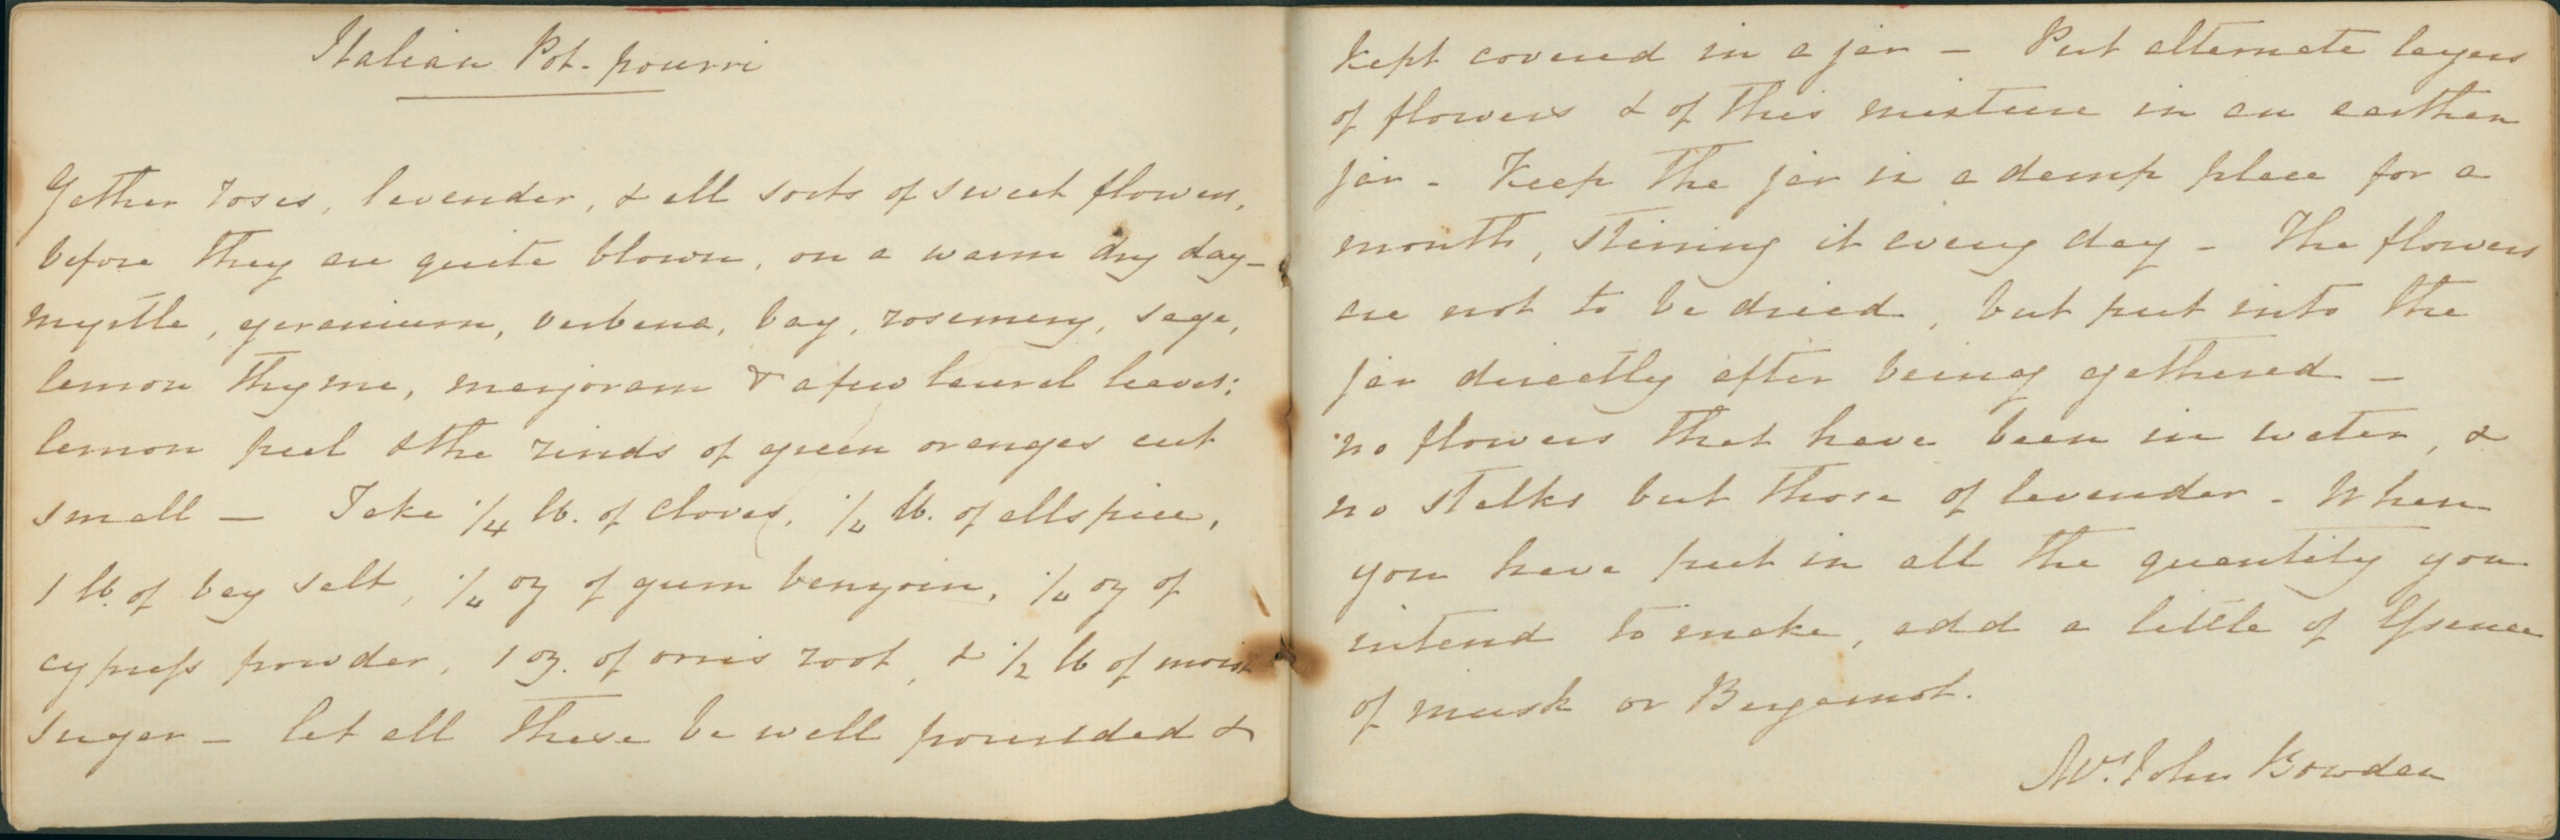 Italian Pot-pourri
Gather roses, lavender, & all sorts of sweet flowers,
before they are quite blown, on a warm dry day-
myrtle, geranium, verbena, bay, rosemery, sage,
lemon thyme, marjoram & a few laurel leaves;
lemon peel & the rinds of green oranges cut
small — Take 1/4 lb. of cloves, 1/4 lb. of allspice,
1 lb. of bay salt, 1/4 oz of gum benzoin, 1/4 oz of
cypreſs powder, 1 oz. of orris root, & 1/2 lb of moist
sugar - let all these be well pounded &
kept covered in a jar - Put alternate layers
of flowers & of this mixture in an earthen
jar - Keep the jar in a damp place for a
month, stirring it every day - The flowers
are not to be dried, but put into the
jar directly after being gathered -
no flowers that have been in water, &
no stalks but those of lavender - When
you have put in all the quantity you
intend to make, add a little of Eſsence
of musk or Bergamot.
Mrs. John Bowden